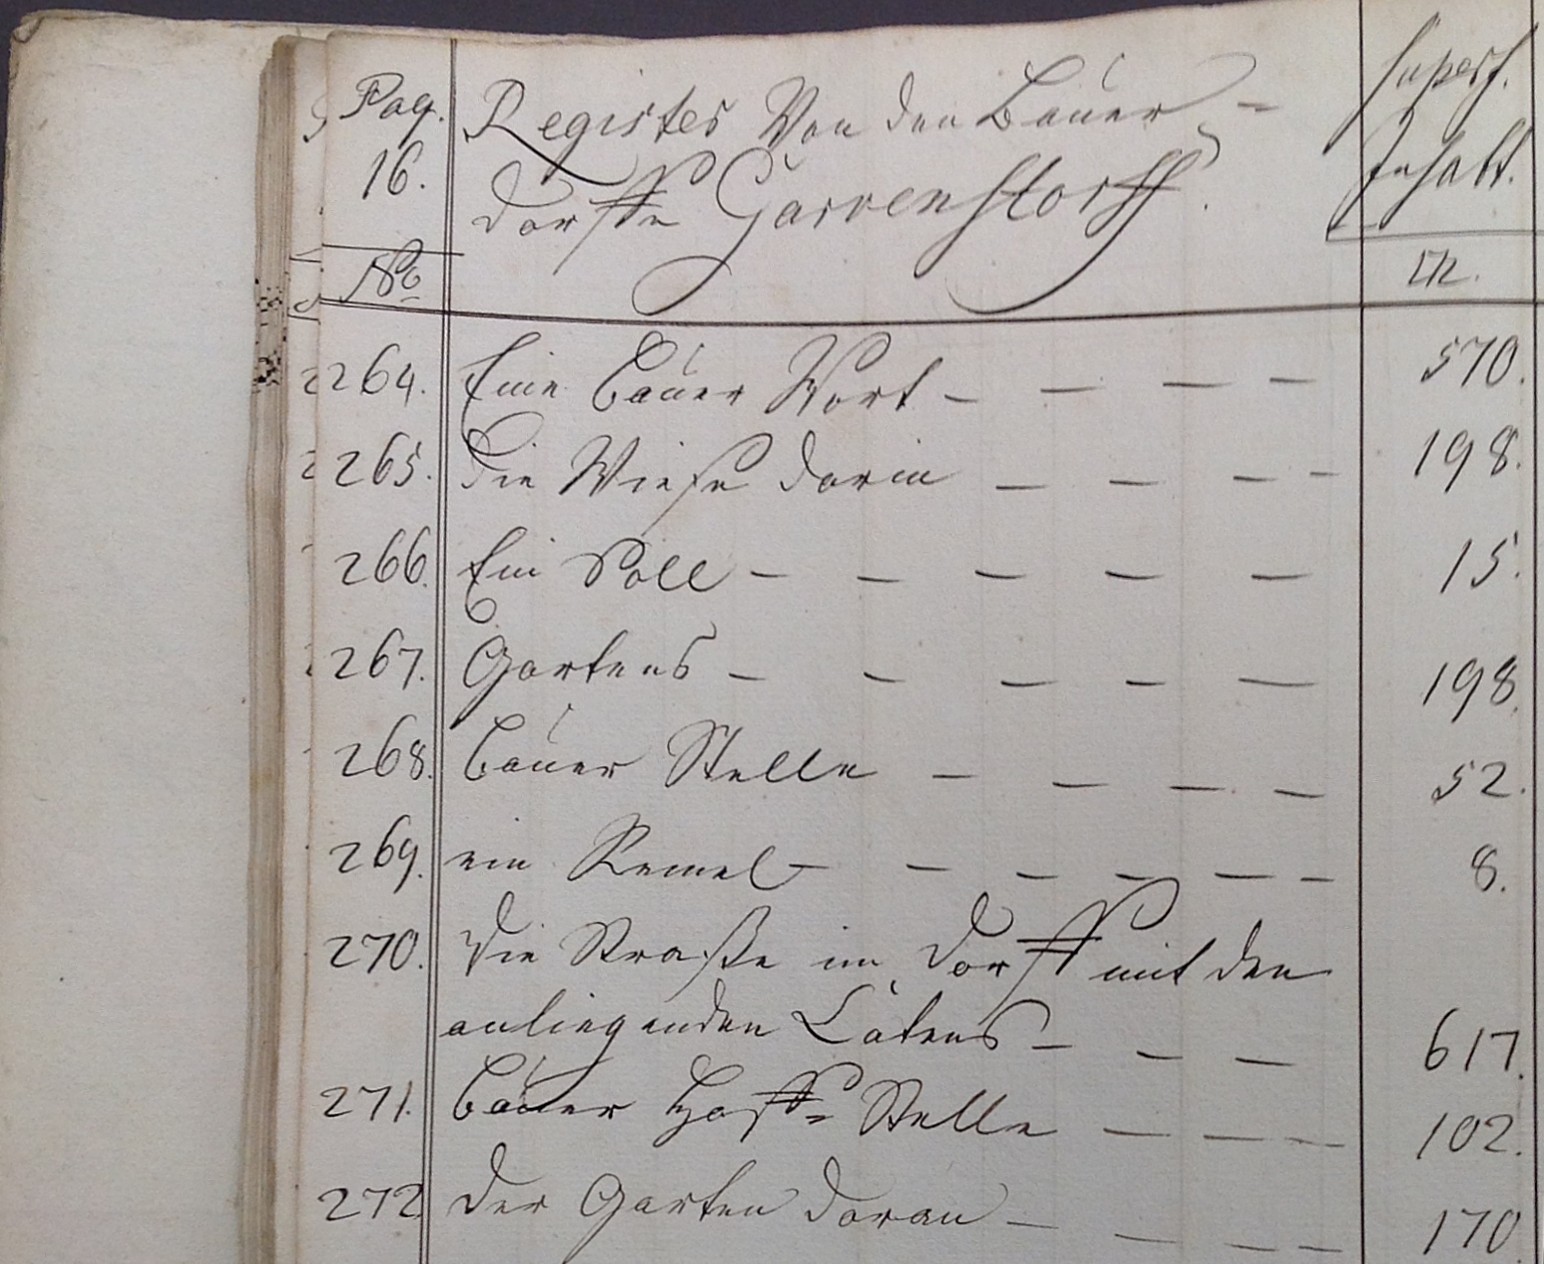 Pag. Register Von den Bauer- Superf.
16. dorffe Garvenstorff. Inhalt.
No □R.
264. Eine Bauer Wort - - - - 570.
265. Die Wiese darin - - - - 198.
266. Ein Soll - - - - - 15.
267. Gartens - - - - - 198.
268. Bauer Stelle - - - - 52.
269. ein Remel - - - - - - 8.
270. Die Straße im Dorff mit den
anliegenden Cätens - - - 617.
271. Bauer Hoff- Stelle - - - 102.
272 Der Garten daran - - - - 170